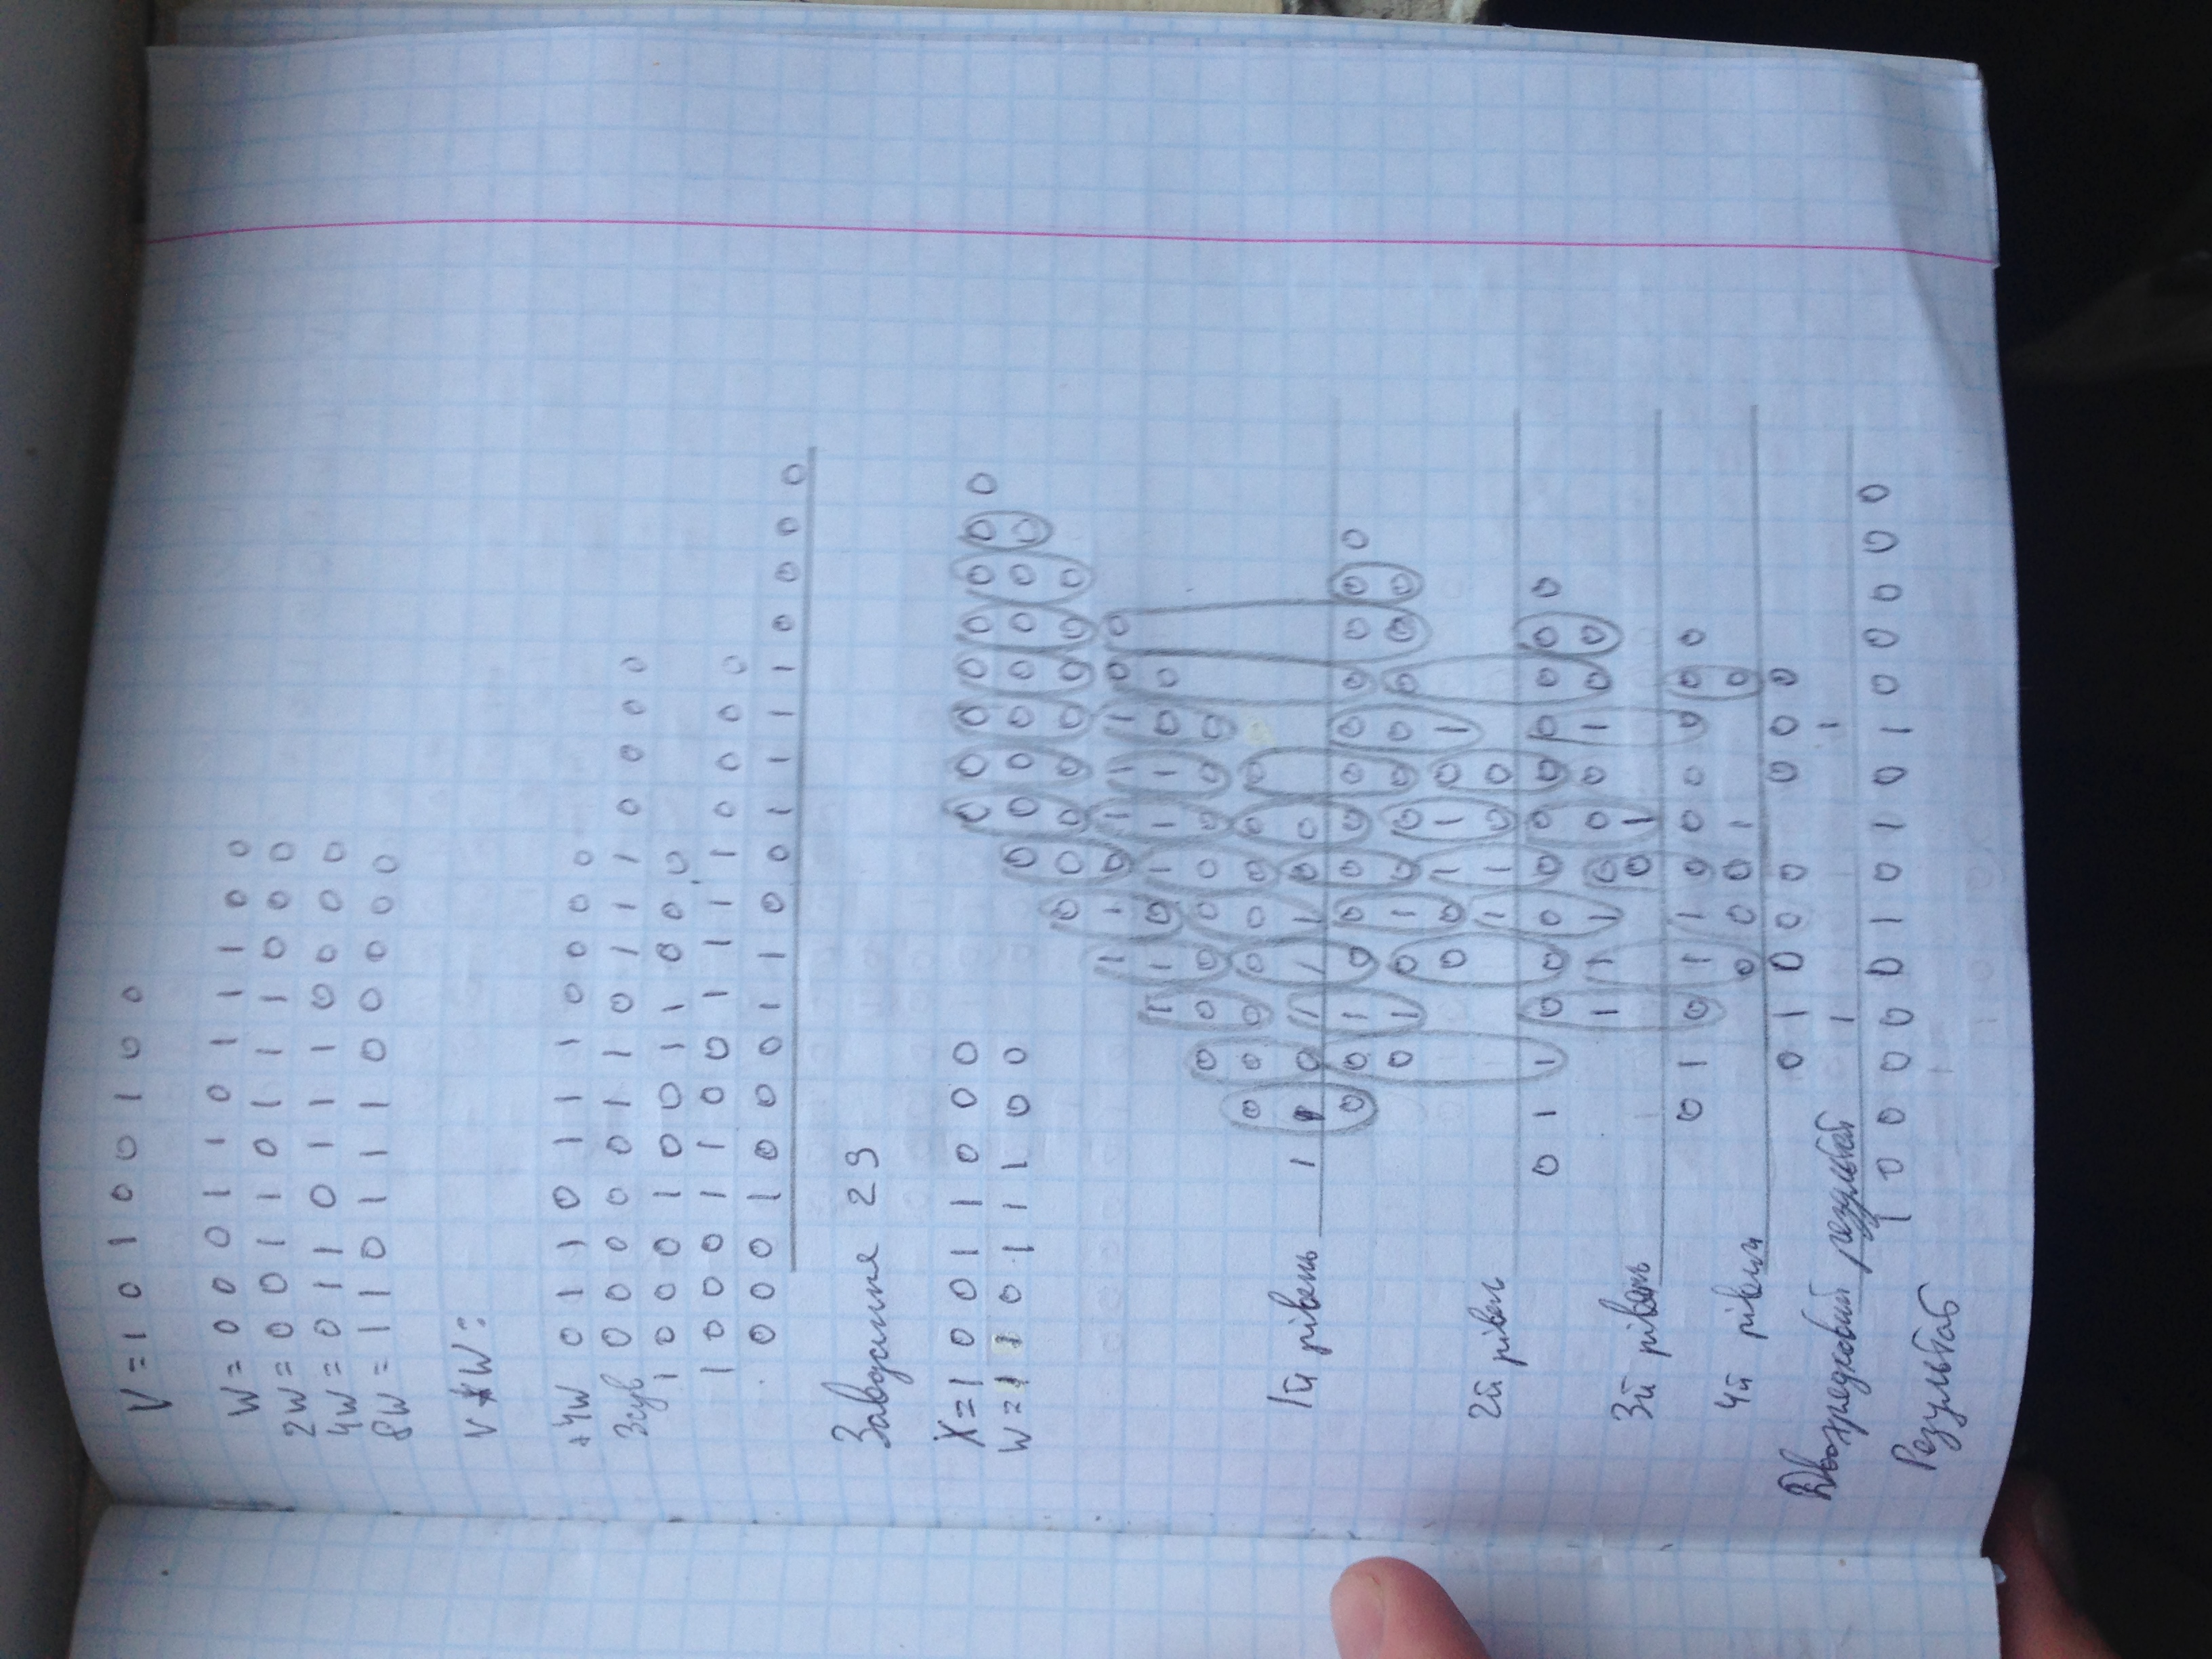 V = 1 0 1 0 0 1 0 0
W = 0 0 0 1 1 0 1 1 1 0 0
2W = 0 0 1 1 0 1 1 1 0 0 0
4W = 0 1 1 0 1 1 1 0 0 0 0
8W = 1 1 0 1 1 1 0 0 0 0 0
V * W =
+4W 0 1 1 0 1 1 1 0 0 0 0
Зсув 0 0 0 0 0 1 1 0 1 1 1 0 0 0 0
1 0 0 0 1 0 0 1 1 0 0 0
1 0 0 0 1 1 0 0 1 1 1 1 0 0 0 0
0 0 0 1 0 0 0 1 1 0 0 1 1 1 1 0 0 0 0
Завдання 29
X = 1 0 0 1 1 0 0 0
W = 1 1 0 1 1 1 0 0
0 0 0 0 0 0 0 0
0 0 0 0 0 0 0 0
0 0 0 0 0 0 0 0
1 1 0 1 1 1 0 0
1 1 0 1 1 1 0 0
0 0 0 0 0 0 0 0
0 0 0 0 0 0 0 0
1й рівень 1 1 0 1 1 1 0 0
0 0 1 0 0 0 0 0 0 0 0 0 0
0 1 0 1 0 0 0 0 0 0 0
0 0 1 1 0 1
2й рівень 1 1 0 0
0 1 1 0 0 0 0 0 0 0 0 0 0
1 1 1 0 0 0 1 0 0
3й рівень 0 1
0 1 0 1 1 0 0 0 0 0 0
4й рівень 0 0 0 1 0
0 1 0 0 0 0 0 0
Дворядковий результат 1 1
1 0 0 0 0 0 1 0 1 0 1 0 0 0 0 0
Результат